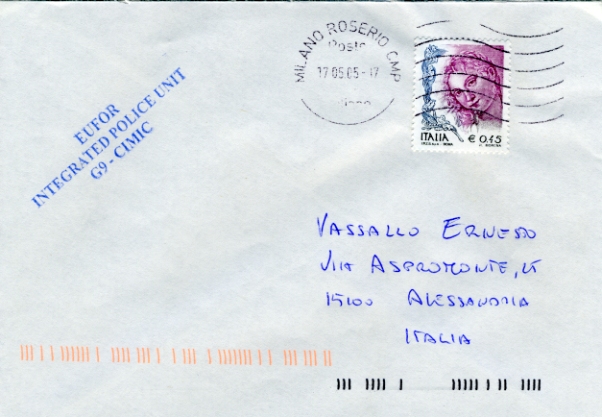 MILANO ROSERIO CMP
Poste
17.05.05-17
EUFOR
INTEGRATED POLICE UNIT
G9 - CIMIC
ITALIA € 0,45
VASSALLO ERNESTO
VIA ASPROMONTE,
15100 ALESSANDRIA
ITALIA